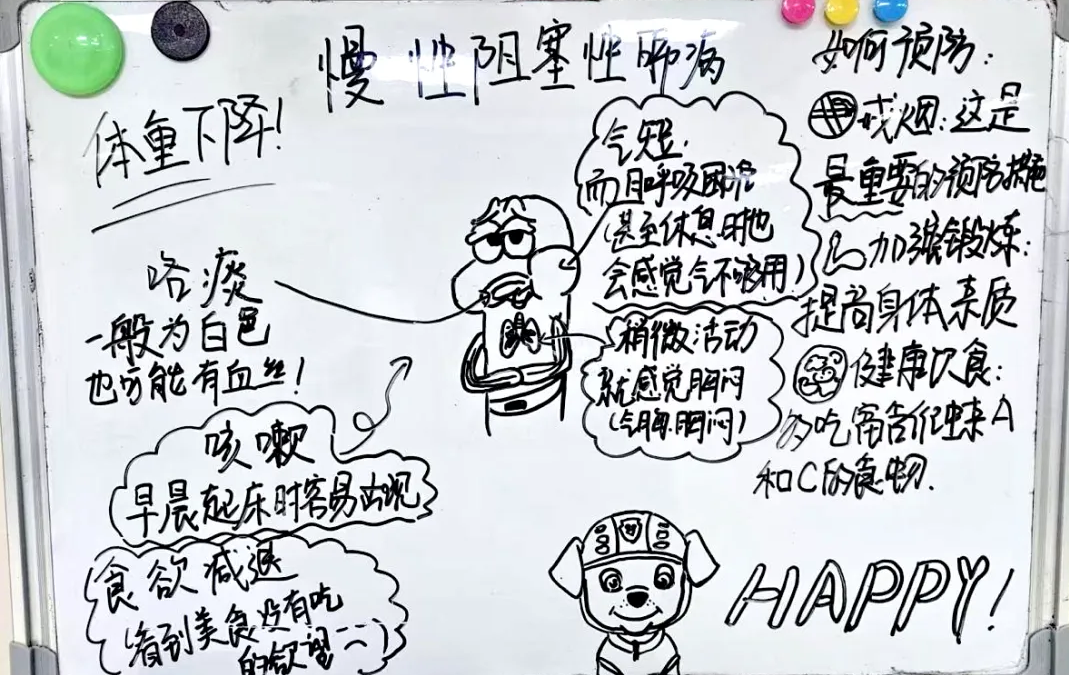 慢性阻塞性肺病
体重下降!
咯痰
一般为白色
也可能有血丝!
咳嗽
早晨起床时容易出现
食欲减退
(看到美食没有吃
的欲望一一)
气短,
而且呼吸困难
(甚至休息时也
会感觉气不够用)
稍微活动
就感觉胸闷
(气胸胸闷)
如何预防:
戒烟:这是
最重要的预防措施
加强锻炼:
提高身体素质
健康饮食:
多吃富含维生素A
和C的食物.
HAPPY!